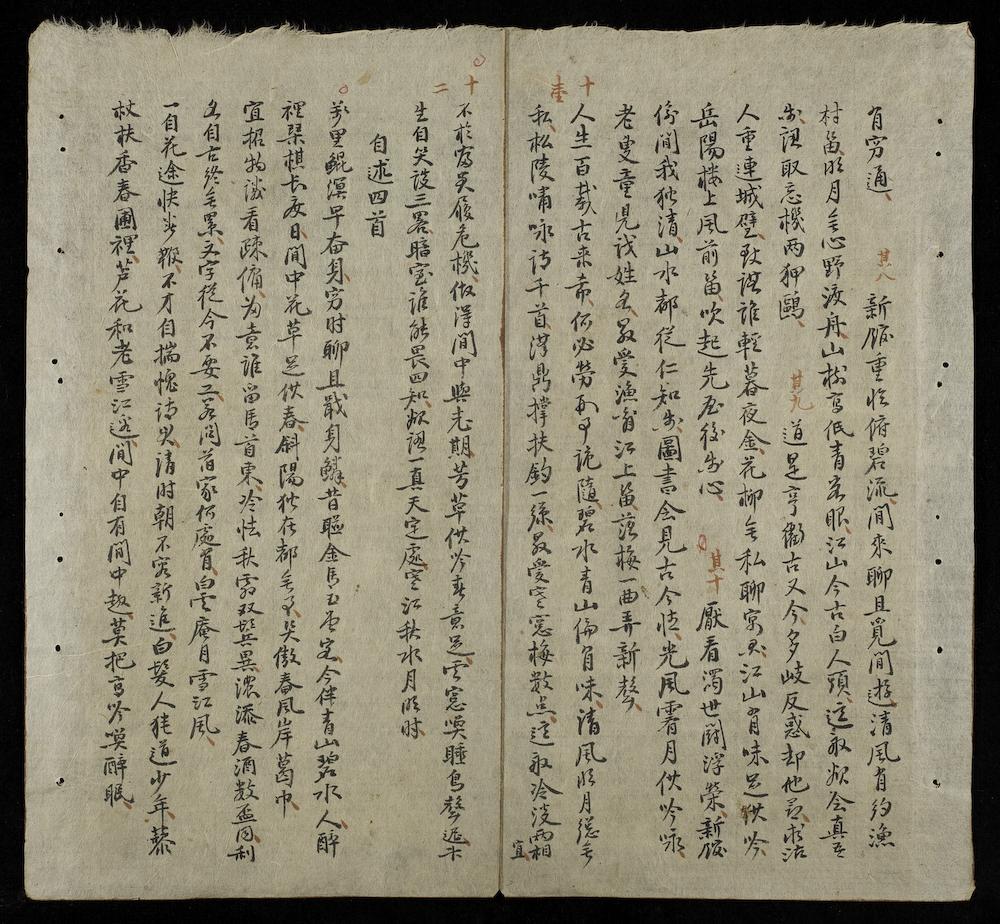 有穷通、其八 新版重恁俯碧流、间來聊且覓间遊、清風有約漁
村笛、明月無心野渡舟、山樹高低青客眼、江山今古白人頭、這般欲会真吾
樂、認取忘機两狎鷗、其九 道是亨衢古又今、多岐反惑却他尋、求沽
人重連城璧、誰輕暮夜金、花柳無私聊寓興、江山有味足供吟、
岳陽樓上風前笛、吹起先憂後樂心、其十 厭看濁世鬪浮榮、新版
偷间我独清、山水都從仁知樂、圖書会見古今情、光風霽月供吟咏、
老叟童兒識姓名、最愛漁翁江上笛、落梅一曲弄新聲、
十壹 人生百歲古來希、何必勞形事詭隨、碧水青山偏有味、清風明月總無
私、松陵嘯咏詩千首、漢鼎撐扶釣一絲、最愛寒窓梅數点、這般冷淡兩相宜
十二 不於富貴履危機、做得间中與老期、芳草供吟春意足、雲窓喚睡鳥聲遲、半
生自笑設三窟、暗室誰能畏四知、欲認一真天定處、寒江秋水月明时
自述四首
萬里鯤溟早奋身、穷时聊且戢身鱗、昔聯金馬玉堂客、今伴青山碧水人、醉
裡琴棋長度日、间中花草足供春、斜陽独在都無事、笑傲春風岸葛巾、
宜招物議看疎慵、为意誰留馬首東、冷怯秋霜双鬂異、濃添春酒数盃同、利
名自古終無累、文字從今不要工、若问首家何處有、白雲庵月雪江風、
一自花途快步鞭、不才自揣愧詩、清时朝不客新進、白髮人徒道少年、藜
杖扶香春圃裡、芦花和老雪江边、间中自有间中趣、莫把高吟喚醉眠、